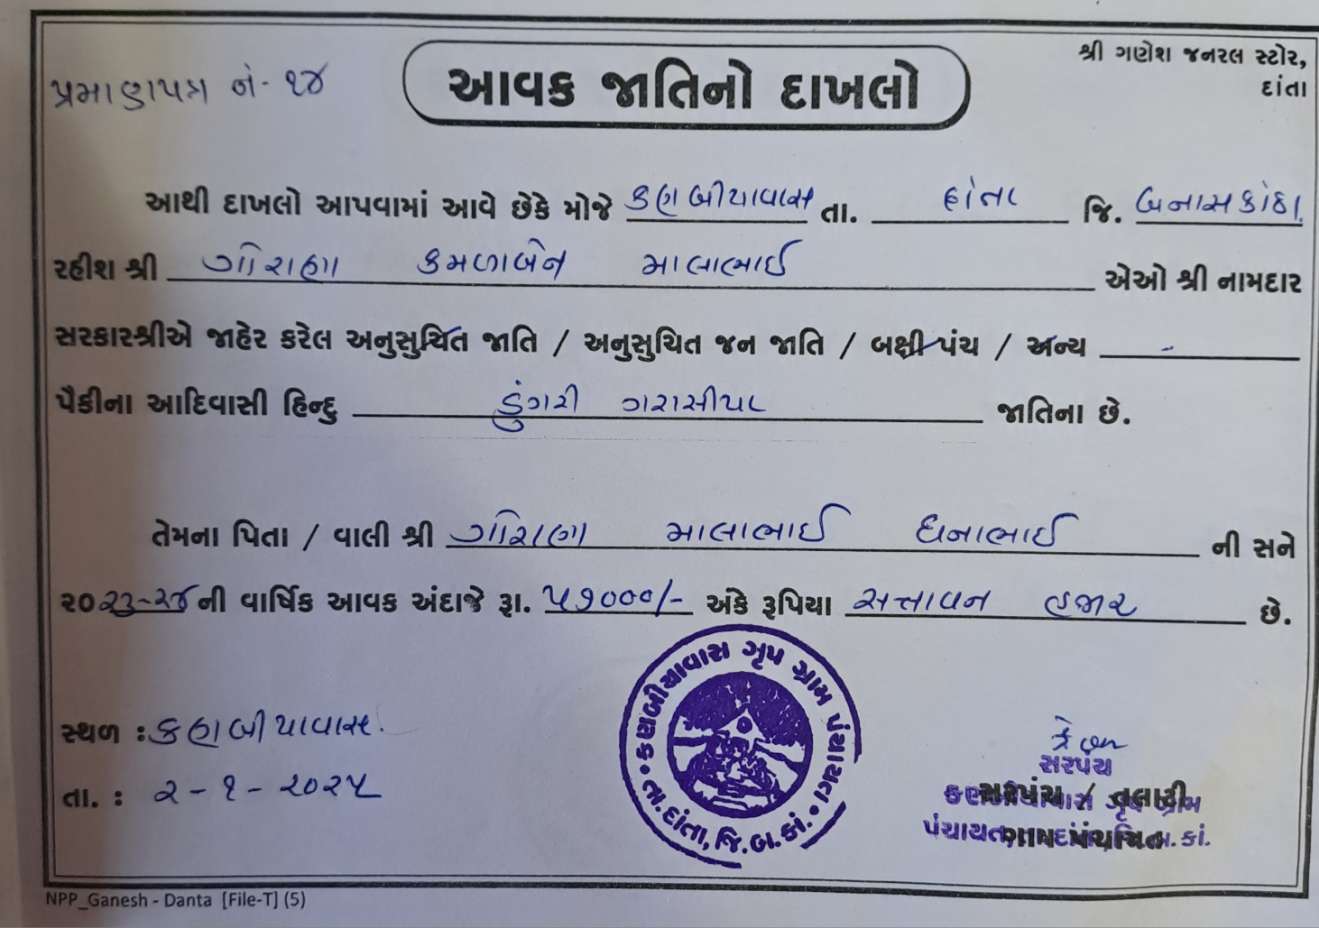 શ્રી ગણેશ જનરલ સ્ટોર,
દાંતા
પ્રમાણપત્ર નં- ૧૪
આવક જાતિનો દાખલો
આથી દાખલો આપવામાં આવે છેકે મોજે કણબીયાવાસ તા. દાંતા જિ. બનાસકાંઠા.
રહીશ શ્રી ગોરાણા કમળાબેન માલાભાઈ એઓ શ્રી નામદાર
સરકારશ્રીએ જાહેર કરેલ અનુસુચિત જાતિ / અનુસુચિત જન જાતિ / બક્ષી પંચ / અન્ય -
પૈકીના આદિવાસી હિન્દુ ડુંગરી ગરાસીયા જાતિના છે.
તેમના પિતા / વાલી શ્રી ગોરાણા માલાભાઈ ધનાભાઈ ની સને
૨૦૨૩-૨૪ ની વાર્ષિક આવક અંદાજે રૂા. ૫૭૦૦૦/- અંકે રૂપિયા સત્તાવન હજાર છે.
સ્થળ : કણબીયાવાસ.
તા. : ૨-૧-૨૦૨૫
કણબીયાવાસ ગૃપ ગ્રામ પંચાયત
તા. દાંતા, જિ. બ.કાં.
સરપંચ
સરપંચ / તલાટી
કણબીયાવાસ ગૃપ ગ્રામ
NPP_Ganesh - Danta [File-T] (5)